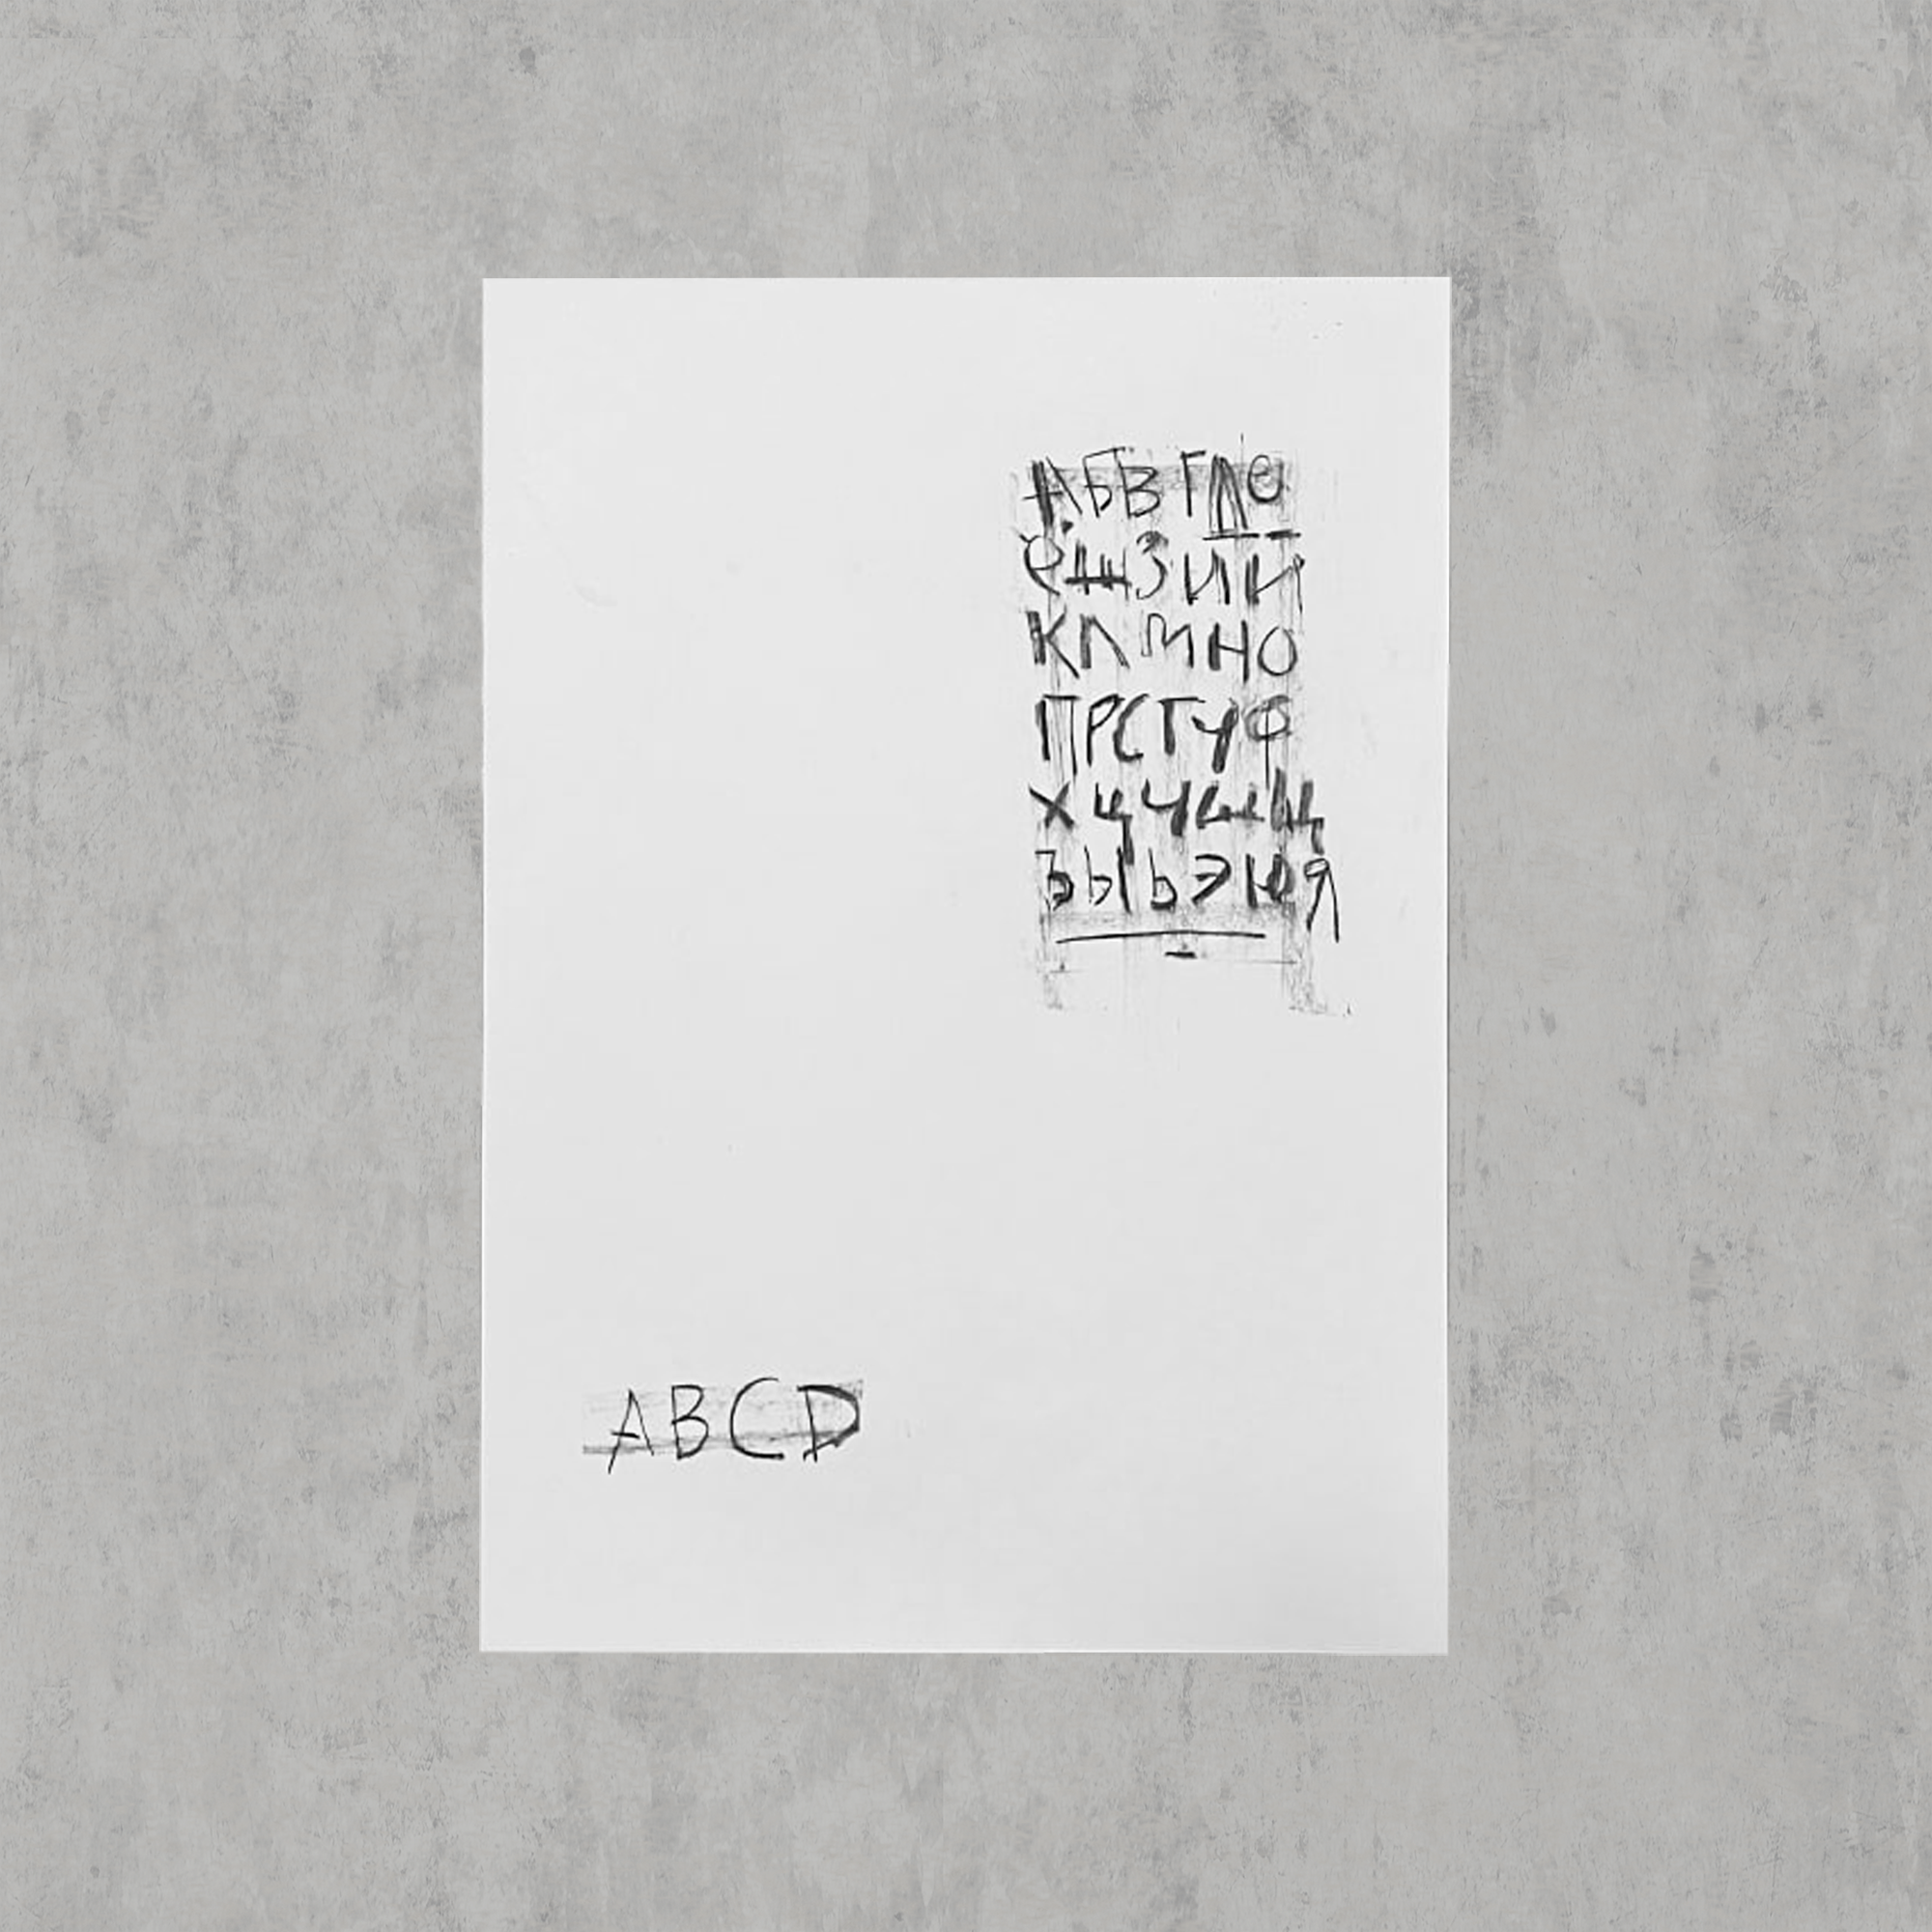 АБВГДе
ёжЗИЙ
КЛМНО
ПРСТУФ
ХЦЧШЩ
ЪЫЬЭЮЯ
ABCD